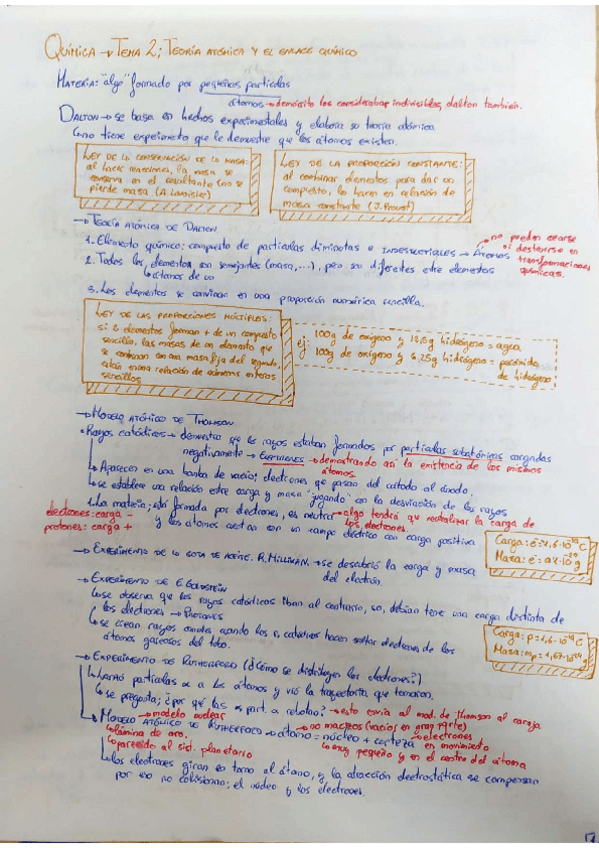 QUÍMICA → TEMA 2; TEORÍA ATÓMICA Y EL ENLACE QUÍMICO
MATERIA: "algo" formado por pequeñas partículas
átomos → demócrito los consideraba indivisibles, dalton también.
DALTON → se basa en hechos experimentales y elabora su teoría atómica
no tiene experimento que le demuestre que los átomos existen.
LEY DE LA CONSERVACIÓN DE LA MASA:
al hacer reacciones, la masa se
conserva en el resultante (no se
pierde masa. (A. Lavoisier)
LEY DE LA PROPORCIÓN CONSTANTE:
al combinar elementos para dar un
compuesto, lo hacen en relación de
masa constante (J. Proust)
→ TEORÍA ATÓMICA DE DALTON
1. Elemento químico: compuesto de partículas diminutas e INDESTRUCTIBLES → ÁTOMOS
no pueden crearse
ni destruirse en
transformaciones
químicas.
2. Todos los elementos son semejantes (masa,...), pero son diferentes otre elementos
átomos de un
3. Los elementos se combinan en una proporción numérica sencilla.
LEY DE LAS PROPORCIONES MÚLTIPLES:
si 2 elementos forman + de un compuesto
sencillo, las masas de un elemento que
se combinan con una masa fija del segundo,
están en una relación de números enteros
sencillos
ej: 100g de oxígeno y 12,5g hidrógeno = agua
100g de oxígeno y 6,25g hidrógeno = peróxido
de hidrógeno
→ MODELO ATÓMICO DE THOMSON
• Rayos catódicos → demuestra que los rayos estaban formados por partículas subatómicas cargadas
negativamente → ELECTRONES → demostrando así la existencia de los mismos
átomos.
Aparecen en una bomba de vacío; electrones que pasan del cátodo al ánodo.
se establece una relación entre carga y masa "jugando" con la desviación de los rayos
1. La materia, está formada por electrones, es neutra → algo tendrá que neutralizar la carga de
los electrones.
electrones: carga -
protones: carga +
y los átomos con un campo eléctrico con carga positiva
Carga: é = 1,6·10⁻¹⁹ C
→ EXPERIMENTO DE LA GOTA DE ACEITE. R. MILLIKAN. → se descubrió la carga y masa
del electrón.
→ EXPERIMENTO DE E. GOLDSTEIN
se observa que los rayos catódicos iban al contrario, so, debían tener una carga distinta de
los electrones → PROTONES
se crean rayos canales cuando los r. catódicos hacen saltar electrones de los
átomos gaseosos del tubo.
Carga: p = 1,6·10⁻¹⁹ C
Masa: mp = 1,67·10⁻²⁴ g
→ EXPERIMENTO DE RUTHERFORD (¿Cómo se distribuyen los electrones?)
Lanzó partículas α a los átomos y vio la trayectoria que tomaron.
se pregunta; ¿por qué las part. α rebotan? → esto envía al mod. de thomson al carajo
modelo nuclear
no macizos (vacíos en gran parte)
MODELO ATÓMICO DE RUTHERFORD → átomo = núcleo + corteza → electrones
en movimiento
lámina de oro.
muy pequeño y en el centro del átomo
parecido al sist. planetario
los electrones giran en torno al átomo, y la atracción electrostática se compensan
por eso no colisionan; el núcleo y los electrones.